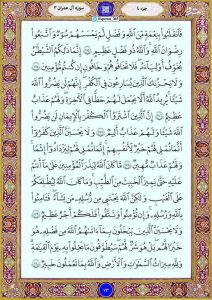 سوره آل عمران ٣
جزء ٤
فَٱنقَلَبُوا۟ بِنِعْمَةٍ مِّنَ ٱللَّهِ وَفَضْلٍ لَّمْ يَمْسَسْهُمْ سُوٓءٌ وَٱتَّبَعُوا۟
رِضْوَٰنَ ٱللَّهِ وَٱللَّهُ ذُو فَضْلٍ عَظِيمٍ ١٧٤ إِنَّمَا ذَٰلِكُمُ ٱلشَّيْطَٰنُ
يُخَوِّفُ أَوْلِيَآءَهُۥ فَلَا تَخَافُوهُمْ وَخَافُونِ إِن كُنتُم مُّؤْمِنِينَ ١٧٥
وَلَا يَحْزُنكَ ٱلَّذِينَ يُسَٰرِعُونَ فِى ٱلْكُفْرِ إِنَّهُمْ لَن يَضُرُّوا۟ ٱللَّهَ
شَيْـًٔا يُرِيدُ ٱللَّهُ أَلَّا يَجْعَلَ لَهُمْ حَظًّا فِى ٱلْـَٔاخِرَةِ وَلَهُمْ عَذَابٌ
عَظِيمٌ ١٧٦ إِنَّ ٱلَّذِينَ ٱشْتَرَوُا۟ ٱلْكُفْرَ بِٱلْإِيمَٰنِ لَن يَضُرُّوا۟ ٱللَّهَ
شَيْـًٔا وَلَهُمْ عَذَابٌ أَلِيمٌ ١٧٧ وَلَا يَحْسَبَنَّ ٱلَّذِينَ كَفَرُوٓا۟
أَنَّمَا نُمْلِى لَهُمْ خَيْرٌ لِّأَنفُسِهِمْ إِنَّمَا نُمْلِى لَهُمْ لِيَزْدَادُوٓا۟ إِثْمًا
وَلَهُمْ عَذَابٌ مُّهِينٌ ١٧٨ مَّا كَانَ ٱللَّهُ لِيَذَرَ ٱلْمُؤْمِنِينَ عَلَىٰ مَآ أَنتُمْ
عَلَيْهِ حَتَّىٰ يَمِيزَ ٱلْخَبِيثَ مِنَ ٱلطَّيِّبِ وَمَا كَانَ ٱللَّهُ لِيُطْلِعَكُمْ
عَلَى ٱلْغَيْبِ وَلَٰكِنَّ ٱللَّهَ يَجْتَبِى مِن رُّسُلِهِۦ مَن يَشَآءُ فَـَٔامِنُوا۟
بِٱللَّهِ وَرُسُلِهِۦ وَإِن تُؤْمِنُوا۟ وَتَتَّقُوا۟ فَلَكُمْ أَجْرٌ عَظِيمٌ ١٧٩
وَلَا يَحْسَبَنَّ ٱلَّذِينَ يَبْخَلُونَ بِمَآ ءَاتَىٰهُمُ ٱللَّهُ مِن فَضْلِهِۦ هُوَ
خَيْرًا لَّهُم بَلْ هُوَ شَرٌّ لَّهُمْ سَيُطَوَّقُونَ مَا بَخِلُوا۟ بِهِۦ يَوْمَ ٱلْقِيَٰمَةِ
وَلِلَّهِ مِيرَٰثُ ٱلسَّمَٰوَٰتِ وَٱلْأَرْضِ وَٱللَّهُ بِمَا تَعْمَلُونَ خَبِيرٌ ١٨٠
٧٣